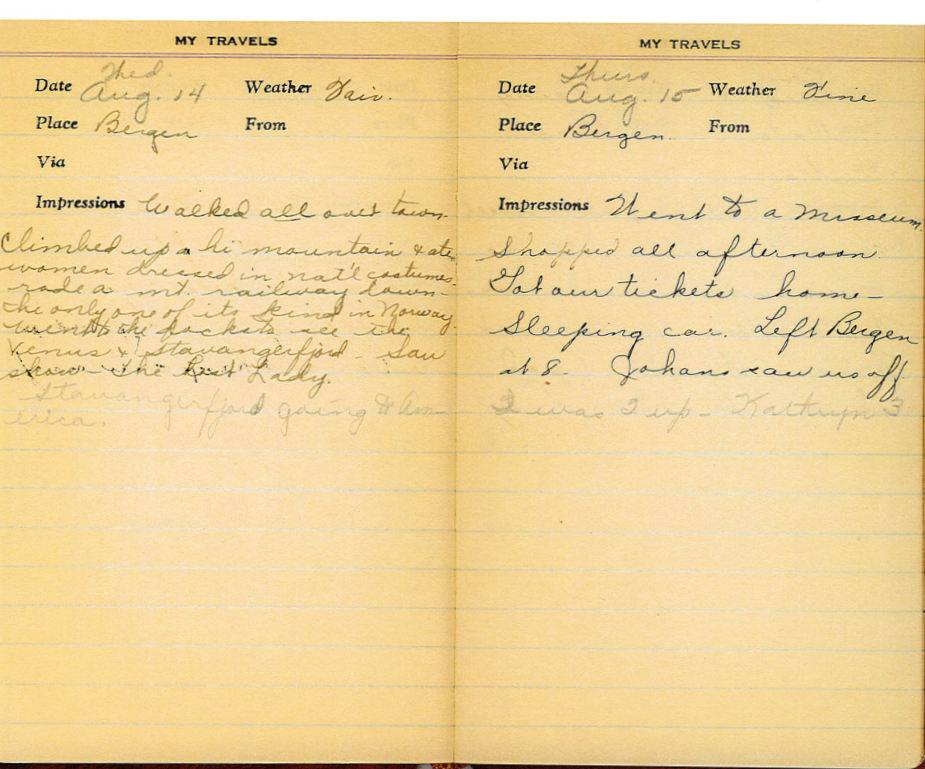 MY TRAVELS
Date Wed. Aug. 14 Weather Fair.
Place Bergen From
Via
Impressions Walked all over town.
Climbed up a hi mountain & ate
women dressed in nat'l costumes.
rode a mt. railway down–
the only one of its kind in Norway.
Went to the docks to see the
Venus & Stavangerfjord. Saw
show– The Lady.
Stavangerfjord going to Am-
erica.
MY TRAVELS
Date Thurs. Aug. 15 Weather Fine
Place Bergen. From
Via
Impressions Went to a museum.
Shopped all afternoon.
Got our tickets home–
Sleeping car. Left Bergen
at 8. Johans saw us off
was 2 up– Kathryn 3